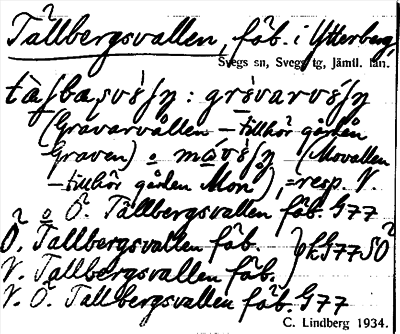 Tallbergsvallen, fäb. i Ytterberg,
Svegs sn, Svegs tg, Jämtl. län.
(Gravarvallen – tillhör gården
Graven) o (Movallen
– tillhör gården Mon), = resp. V.
o Ö. Tallbergsvallen fäb. G77
Ö. Tallbergsvallen fäb.
V. Tallbergsvallen fäb. } pk G77 SO
V. Ö. Tallbergsvallen fäb. G77
C. Lindberg 1934.